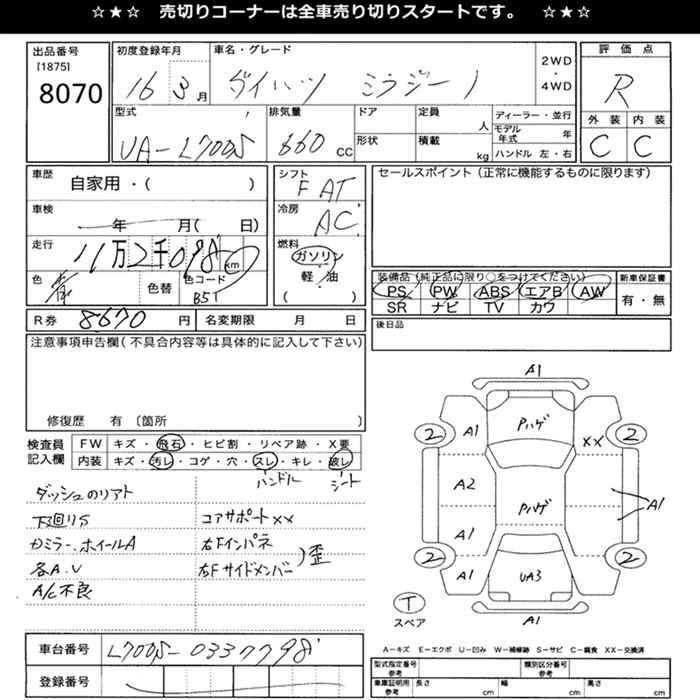 ☆ ★ ☆ 売切りコーナーは全車売り切りスタートです。 ☆ ★ ☆
出品番号
[1875]
8070
初度登録年月
16 3月
車名・グレード
ダイハツ ミラジーノ
2WD
・
4WD
評価点
R
外装 内装
C C
型式
UA-L700S
排気量
660 CC
ドア
形状
定員
人
積載
kg
ディーラー・並行
モデル年式 年
ハンドル 左・右
車歴
自家用・( )
車検
年 月( 日)
走行
11万2千098 km
色
青
色替
色コード
B51
シフト
F AT
冷房
AC
燃料
ガソリン
軽・油
( )
セールスポイント(正常に機能するものに限ります)
装備品(純正品に限り○をつけてください)
PS PW ABS エアB AW
SR ナビ TV カワ
新車保証書
有・無
R券 8670 円
名変期限 月 日
後日品
注意事項申告欄(不具合内容等は具体的に記入して下さい)
修復歴 有 〔箇所 〕
検査員
記入欄
FW キズ・飛石・ヒビ割・リペア跡・X要
内装 キズ・汚レ・コゲ・穴・スレ・キレ・破レ
ハンドル
シート
ダッシュのリアト
下廻りS
ミラー、ホイールA
各A.U
A/C不良
コアサポートXX
右Fインパネ
右Fサイドメンバー
歪
A1
2 A1 Pハゲ XX 2
A2 Pハゲ A1
A1
2 A1 UA3 2
T
スペア
A1
A-キズ E-エクボ U-凹み W-補修跡 S-サビ C-腐食 XX-交換済
車台番号
L700S-0337798
登録番号
型式指定番号
参考
類別区分番号
参考
車庫証明用
参考
長さ cm
幅 cm
高さ cm